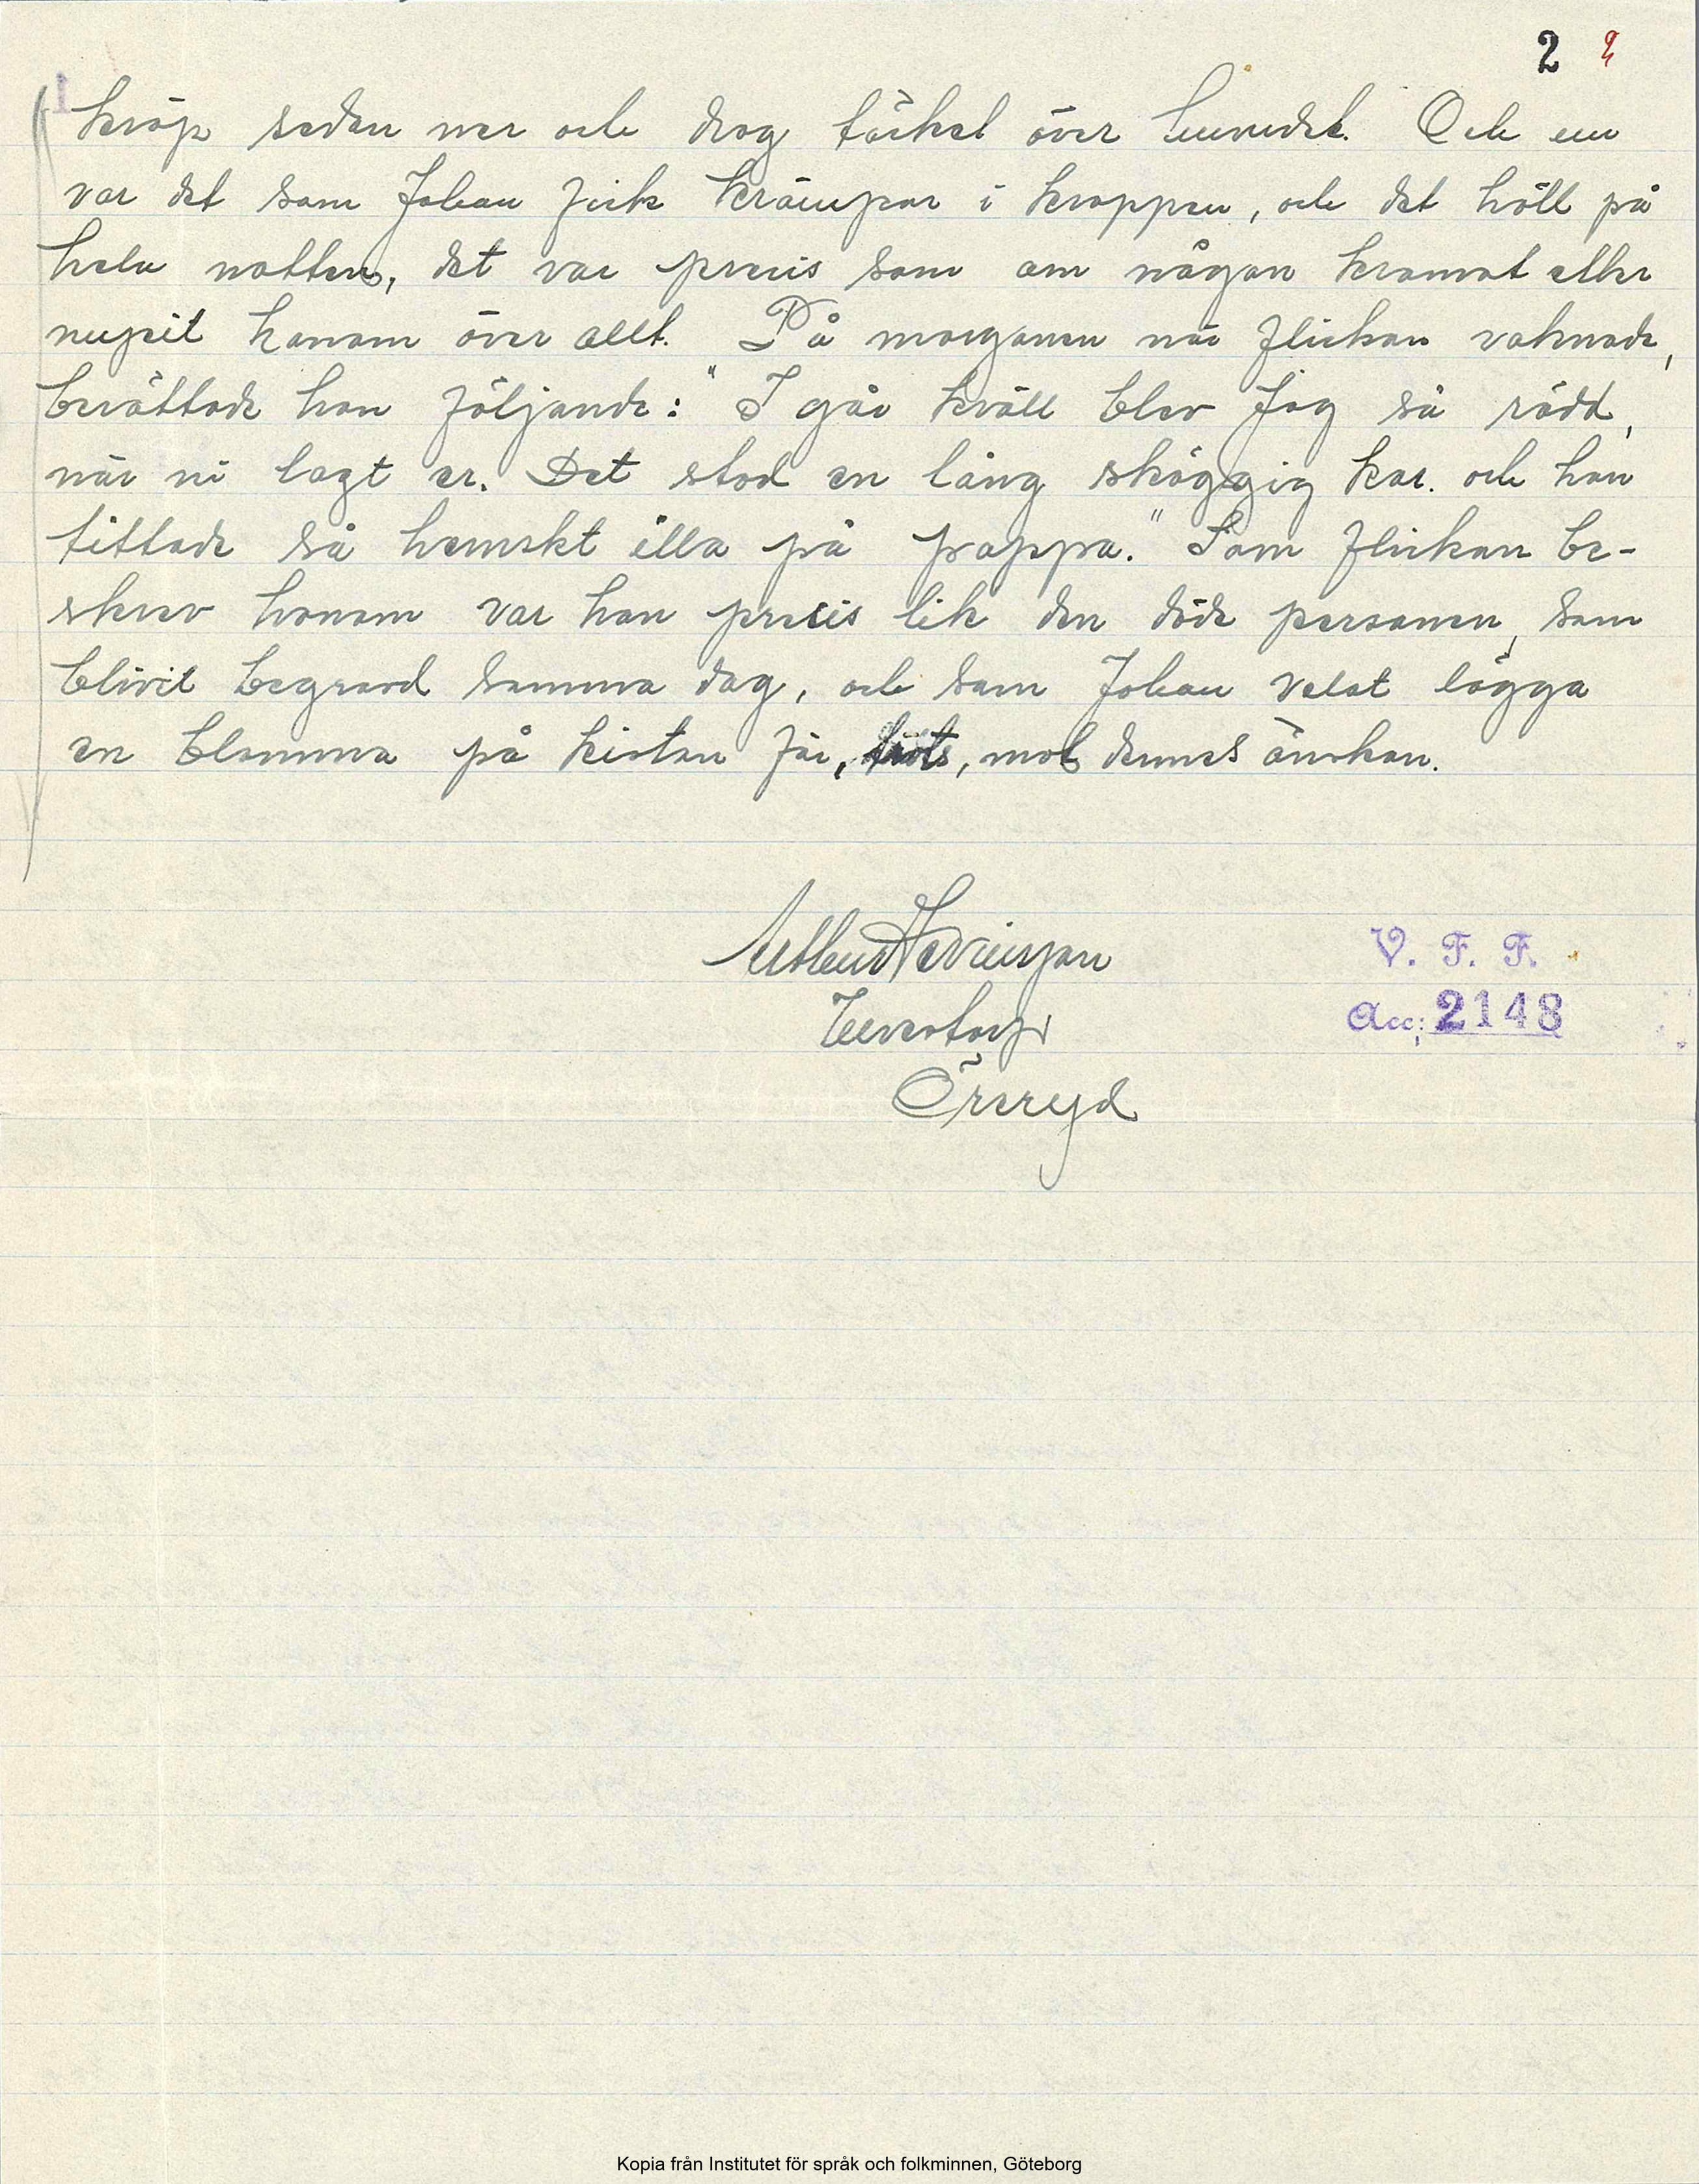 2 2
1
kröp sedan ner och drog täcket över huvudet. Och nu
var det som Johan fick krämpor i kroppen, och det höll på
hela natten, det var precis som om någon kramat eller
nupit honom över allt. På morgonen när flickan vaknade,
berättade hon följande: "I går kväll blev jag så rädd,
när ni lagt er. Det stod en lång skäggig kar. och han
tittade så hemskt illa på pappa." Som flickan be-
skrev honom var han precis lik den döde personen, som
blivit begravd samma dag, och som Johan velat lägga
en blomma på kistan för, trots, mot dennes önskan.
Arthur
Örsryd
V. F. F.
Acc: 2148
Kopia från Institutet för språk och folkminnen, Göteborg